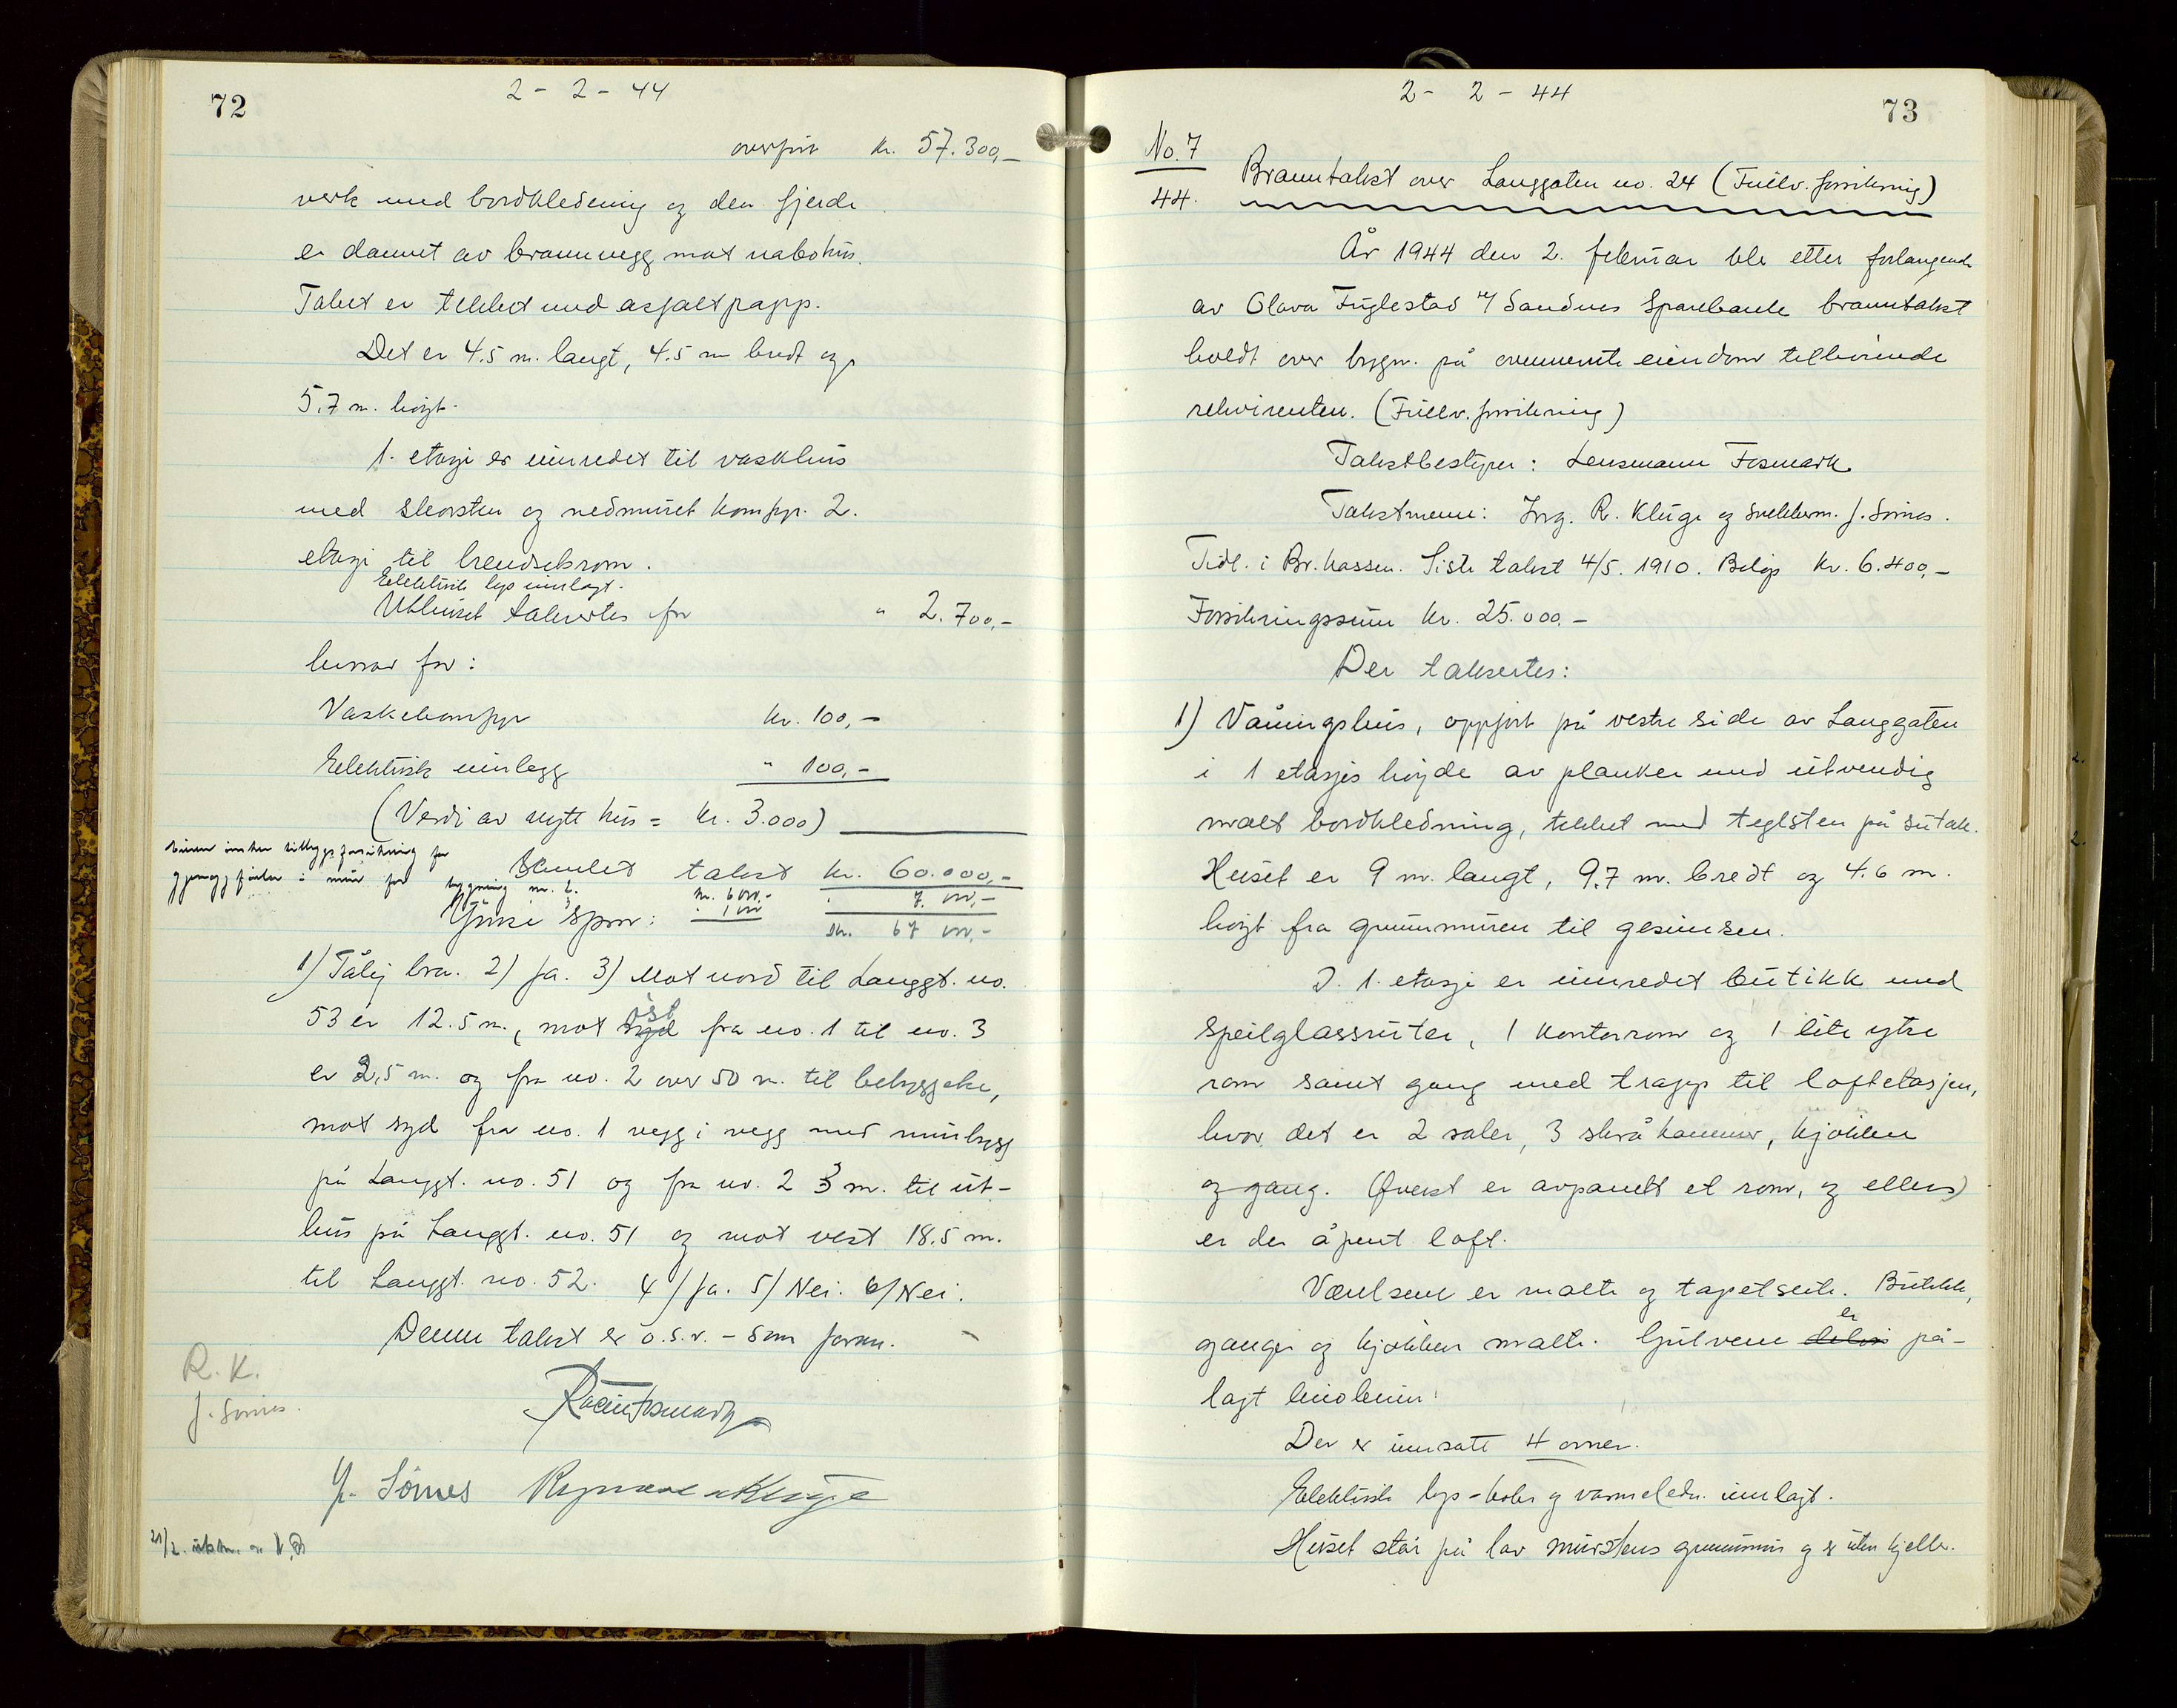 72
2 - 2 - 44
overført kr. 57.300,-
verk med bordkledning og den fjerde
er dannet av brannvegg mot nabohus.
Taket er tekket med asfaltpapp.
Det er 4.5 m. langt, 4.5 m bredt og
5.7 m. høgt.
1. etasje er innredet til vaskhus
med skorsten og nedmuret kompyr. 2.
etasje til brendselsrom.
Elektrisk lys innlagt.
Uthuset takseres for " 2.700,-
hvorav for:
Vaskekompyr kr. 100,-
Elektrisk innlegg " 100,-
(Verdi av nytt hus = kr. 3.000)
Samlet takst kr. 60.000,-
bygning nr. 2.
1) Tålig bra. 2) Ja. 3) Mot nord til Langgt. no.
53 er 12.5 m., mot syd øst fra no. 1 til no. 3
er 2,5 m. og fra no. 2 over 50 m. til bebyggelse,
mot syd fra no. 1 vegg i vegg med murbygg
på Langgt. no. 51 og fra no. 2 3 m. til ut-
hus på Langgt. no. 51 og mot vest 18.5 m.
til Langgt. no. 52. 4/ Ja. 5/ Nei. 6/ Nei.
Denne takst er o.s.v. - som foran.
R. K.
J. Sømes.
J. Sømes Kluge
73
2 - 2 - 44
No. 7
44.
Branntakst over Langgaten no. 24 (Fullv. forsikring)
År 1944 den 2. februar ble etter forlangende
av Olava Fuglestad v/ Sandnes Sparebank branntakst
holdt over bygn. på ovennevnte eiendom tilhørende
rekvirenten. (Fullv. forsikring)
Takstbestyrer: Lensmann Fosmark
Takstmenn: Ing. R. Kluge og snekkerm. J. Sømes.
Tidl. i Br. kassen. Siste takst 4/5. 1910. Beløp kr. 6.400,-
Forsikringssum kr. 25.000.-
Der takseres:
1) Våningshus, oppført på vestre side av Langgaten
i 1 etasjes høyde av planker med utvendig
malt bordkledning, tekket med teglsten på sutak.
Huset er 9 m. langt, 9.7 m. bredt og 4.6 m.
høgt fra grunnmuren til gesimsen.
I 1. etasje er innredet butikk med
speilglassruter, 1 kontorrom og 1 lite ytre
rom samt gang med trapp til loftetasjen,
hvor det er 2 saler, 3 skråkammer, kjøkken
og gang. Øverst er avpanelt et rom, og ellers
er der åpent loft.
Værelsene er malte og tapetserte. Butikk,
ganger og kjøkken malte. Gulvene er på-
lagt linoleum.
Der er innsatt 4 ovner.
Elektrisk lys - koke og varmeledn. innlagt.
Huset står på lav murstens grunnmur og er uten kjeller.